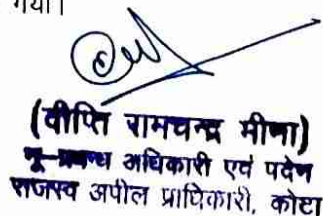 गया।
(दीप्ति रामचन्द्र मीणा)
भू-प्रबन्ध अधिकारी एवं पदेन
राजस्व अपील प्राधिकारी, कोटा